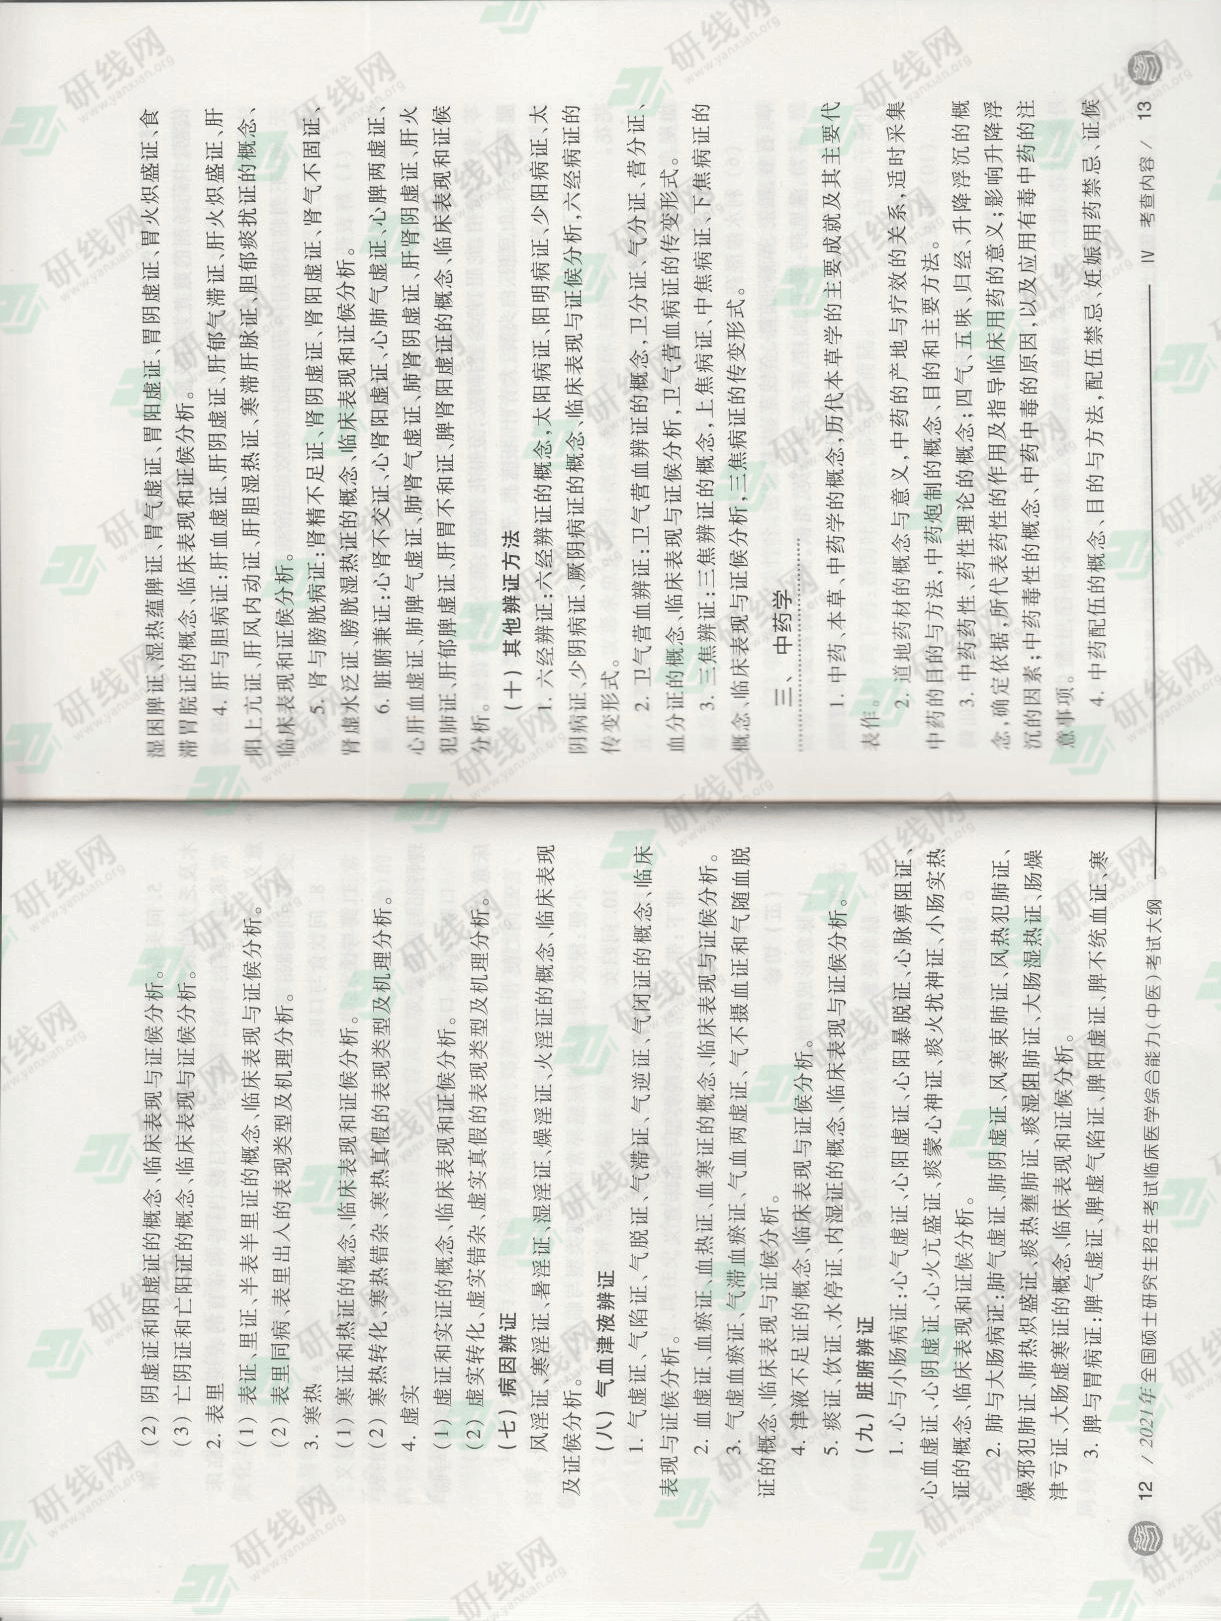 (2) 阴虚证和阳虚证的概念、临床表现与证候分析。
(3) 亡阴证和亡阳证的概念、临床表现与证候分析。
2. 表里
(1) 表证、里证、半表半里证的概念、临床表现与证候分析。
(2) 表里同病、表里出入的表现类型及机理分析。
3. 寒热
(1) 寒证和热证的概念、临床表现和证候分析。
(2) 寒热转化、寒热错杂、寒热真假的表现类型及机理分析。
4. 虚实
(1) 虚证和实证的概念、临床表现和证候分析。
(2) 虚实转化、虚实错杂、虚实真假的表现类型及机理分析。
(七) 病因辨证
风淫证、寒淫证、暑淫证、湿淫证、燥淫证、火淫证的概念、临床表现
及证候分析。
(八) 气血津液辨证
1. 气虚证、气陷证、气脱证、气滞证、气逆证、气闭证的概念、临床
表现与证候分析。
2. 血虚证、血瘀证、血热证、血寒证的概念、临床表现与证候分析。
3. 气虚血瘀证、气滞血瘀证、气血两虚证、气不摄血证和气随血脱
证的概念、临床表现与证候分析。
4. 津液不足证的概念、临床表现与证候分析。
5. 痰证、饮证、水停证、内湿证的概念、临床表现与证候分析。
(九) 脏腑辨证
1. 心与小肠病证:心气虚证、心阳虚证、心阳暴脱证、心脉痹阻证、
心血虚证、心阴虚证、心火亢盛证、痰蒙心神证、痰火扰神证、小肠实热
证的概念、临床表现和证候分析。
2. 肺与大肠病证:肺气虚证、肺阴虚证、风寒束肺证、风热犯肺证、
燥邪犯肺证、肺热炽盛证、痰热壅肺证、痰湿阻肺证、大肠湿热证、肠燥
津亏证、大肠虚寒证的概念、临床表现和证候分析。
3. 脾与胃病证:脾气虚证、脾虚气陷证、脾阳虚证、脾不统血证、寒
12 / 2021年全国硕士研究生招生考试临床医学综合能力(中医)考试大纲
湿困脾证、湿热蕴脾证、胃气虚证、胃阳虚证、胃阴虚证、胃火炽盛证、食
滞胃脘证的概念、临床表现和证候分析。
4. 肝与胆病证:肝血虚证、肝阴虚证、肝郁气滞证、肝火炽盛证、肝
阳上亢证、肝风内动证、肝胆湿热证、寒滞肝脉证、胆郁痰扰证的概念、
临床表现和证候分析。
5. 肾与膀胱病证:肾精不足证、肾阴虚证、肾阳虚证、肾气不固证、
肾虚水泛证、膀胱湿热证的概念、临床表现和证候分析。
6. 脏腑兼证:心肾不交证、心肾阳虚证、心肺气虚证、心脾两虚证、
心肝血虚证、肺脾气虚证、肺肾气虚证、肺肾阴虚证、肝肾阴虚证、肝火
犯肺证、肝郁脾虚证、肝胃不和证、脾肾阳虚证的概念、临床表现和证候
分析。
(十) 其他辨证方法
1. 六经辨证:六经辨证的概念,太阳病证、阳明病证、少阳病证、太
阴病证、少阴病证、厥阴病证的概念、临床表现与证候分析,六经病证的
传变形式。
2. 卫气营血辨证:卫气营血辨证的概念,卫分证、气分证、营分证、
血分证的概念、临床表现与证候分析,卫气营血病证的传变形式。
3. 三焦辨证:三焦辨证的概念,上焦病证、中焦病证、下焦病证的
概念、临床表现与证候分析,三焦病证的传变形式。
三、中药学
1. 中药、本草、中药学的概念,历代本草学的主要成就及其主要代
表作。
2. 道地药材的概念与意义,中药的产地与疗效的关系,适时采集
中药的目的与方法,中药炮制的概念、目的和主要方法。
3. 中药药性、药性理论的概念;四气、五味、归经、升降浮沉的概
念,确定依据,所代表药性的作用及指导临床用药的意义;影响升降浮
沉的因素;中药毒性的概念、中药中毒的原因,以及应用有毒中药的注
意事项。
4. 中药配伍的概念、目的与方法,配伍禁忌、妊娠用药禁忌、证候
Ⅳ 考查内容 / 13
研线网
www.yanxian.org